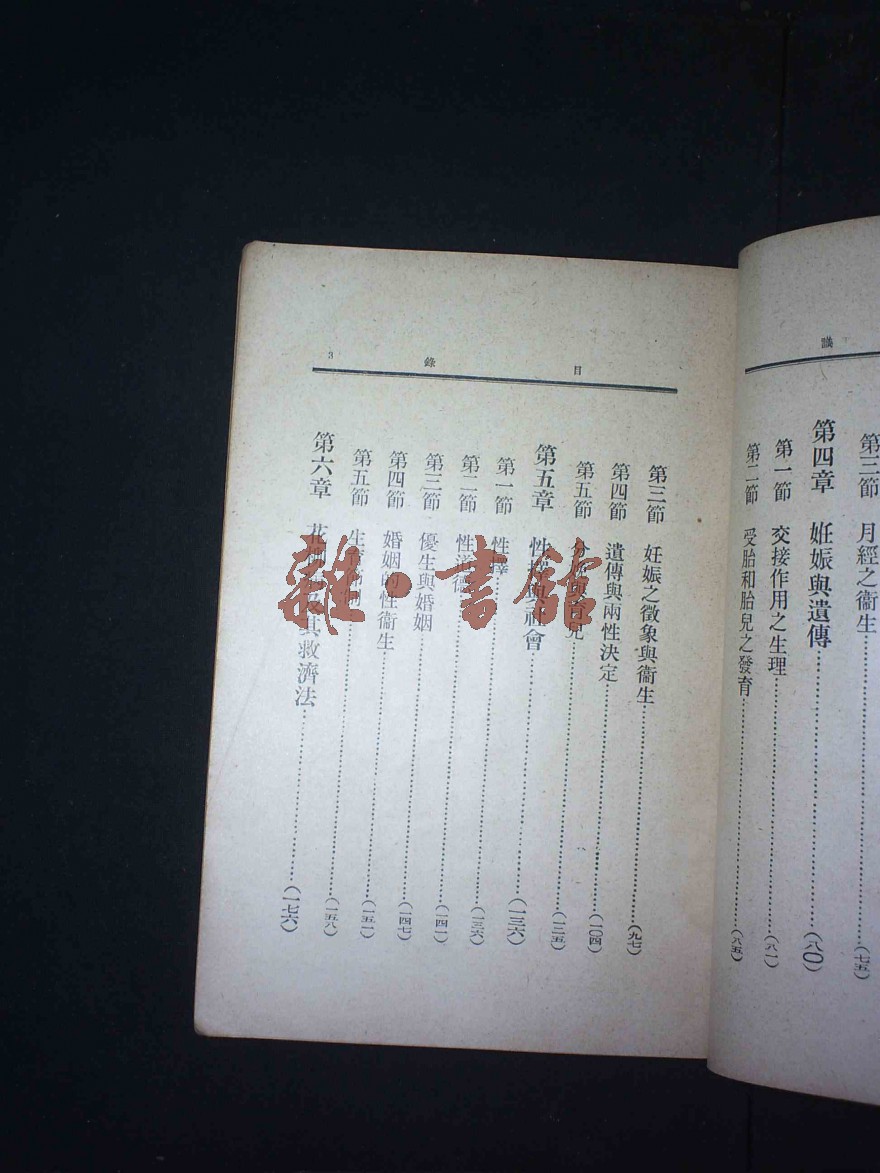 識
第三節 月經之衞生……(七五)
第四章 姙娠與遺傳……(八〇)
第一節 交接作用之生理……(八一)
第二節 受胎和胎兒之發育……(八五)
目 錄 3
第三節 姙娠之徵象與衞生……(九七)
第四節 遺傳與兩性決定……(一〇四)
第五節 分 與育兒……(一二五)
第五章 性 與社會……(一三六)
第一節 性擇……(一三六)
第二節 性道德……(一四一)
第三節 優生與婚姻……(一四七)
第四節 婚姻的性衞生……(一五一)
第五節 生育 制……(一五八)
第六章 花柳病及其救濟法……(一七六)
雜·書館